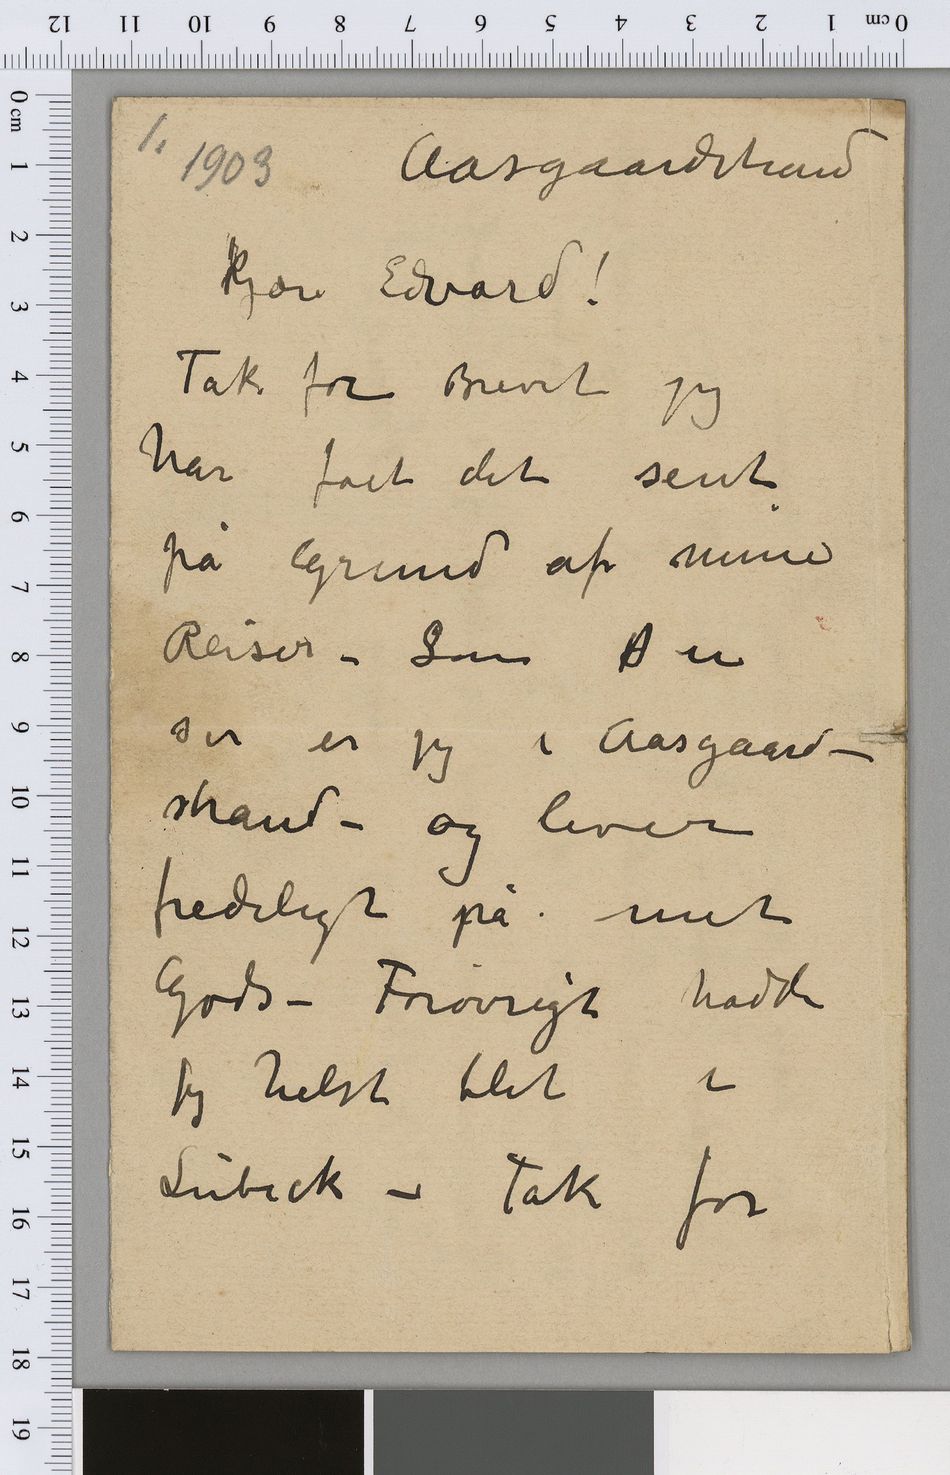 0 cm 1 2 3 4 5 6 7 8 9 10 11 12
0 cm 1 2 3 4 5 6 7 8 9 10 11 12 13 14 15 16 17 18 19
1. 1903 Aasgaardstrand
Kjære Edvard!
Tak for Brevet jeg
har fået det sent
på Grund af mine
Reiser – Som Du
ser er jeg i Aasgaard–
strand – og lever
fredeligt på mit
Gods – Forøvrigt hadde
jeg helst blet i
Lübeck – Tak for